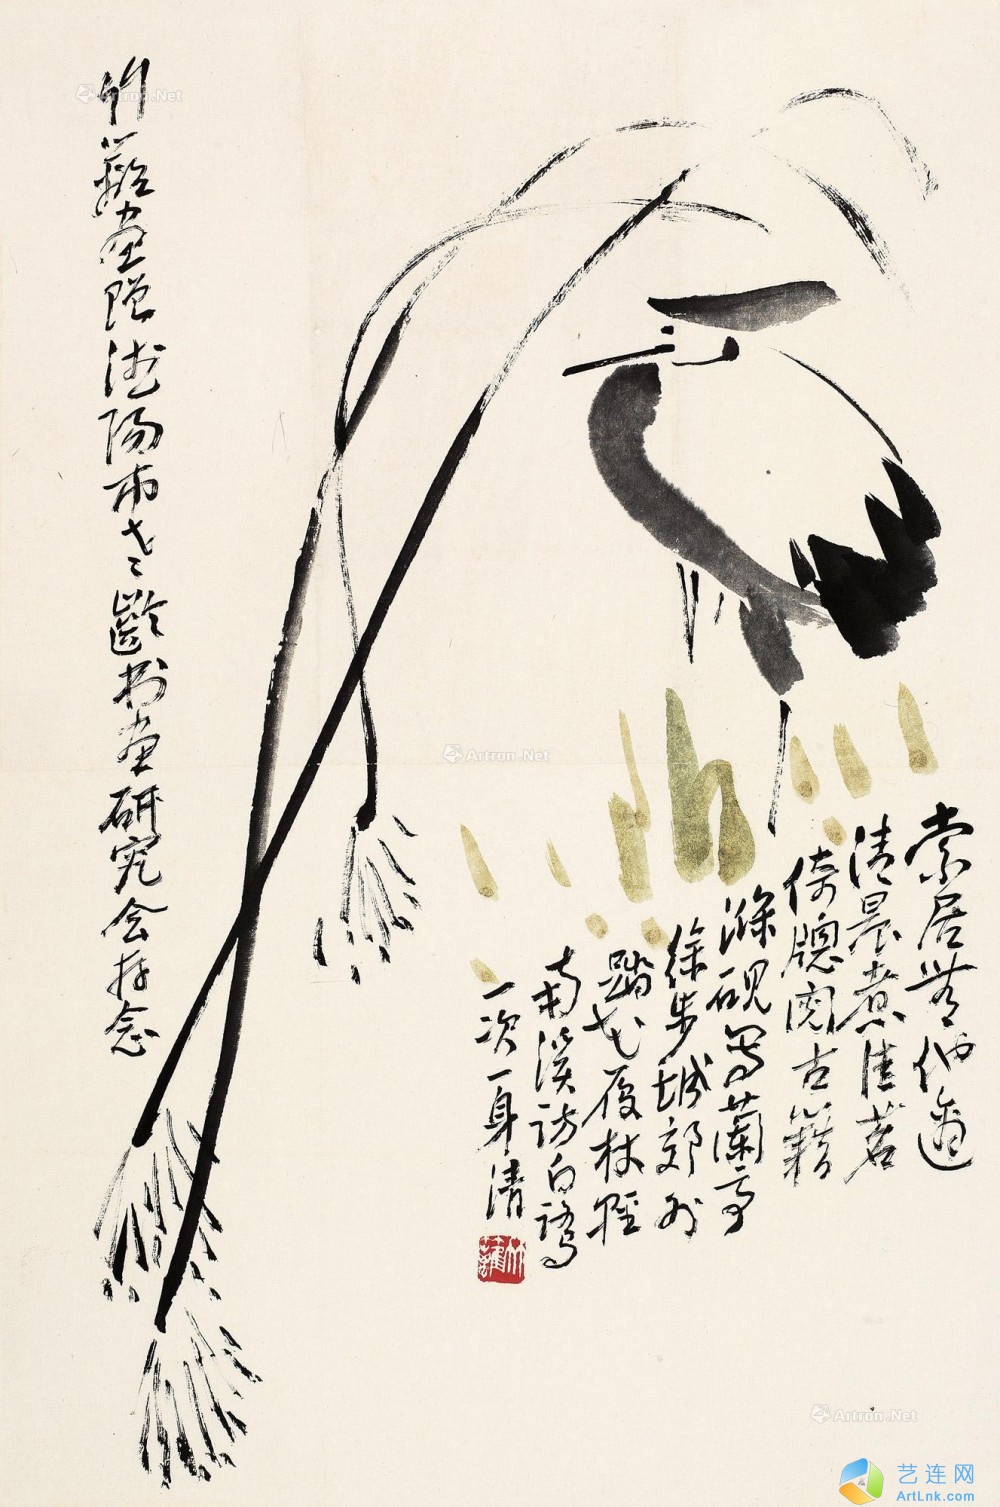 索居无他适
清晨煮佳茗
倚窗阅古籍
涤砚写兰亭
徐步城郊外
踏花履杖轻
南溪访白鹭
一次一身清
画赠沈阳市老龄书画研究会存念
Artron.Net
Artron.Net
Artron.Net
艺连网
ArtLnk.com